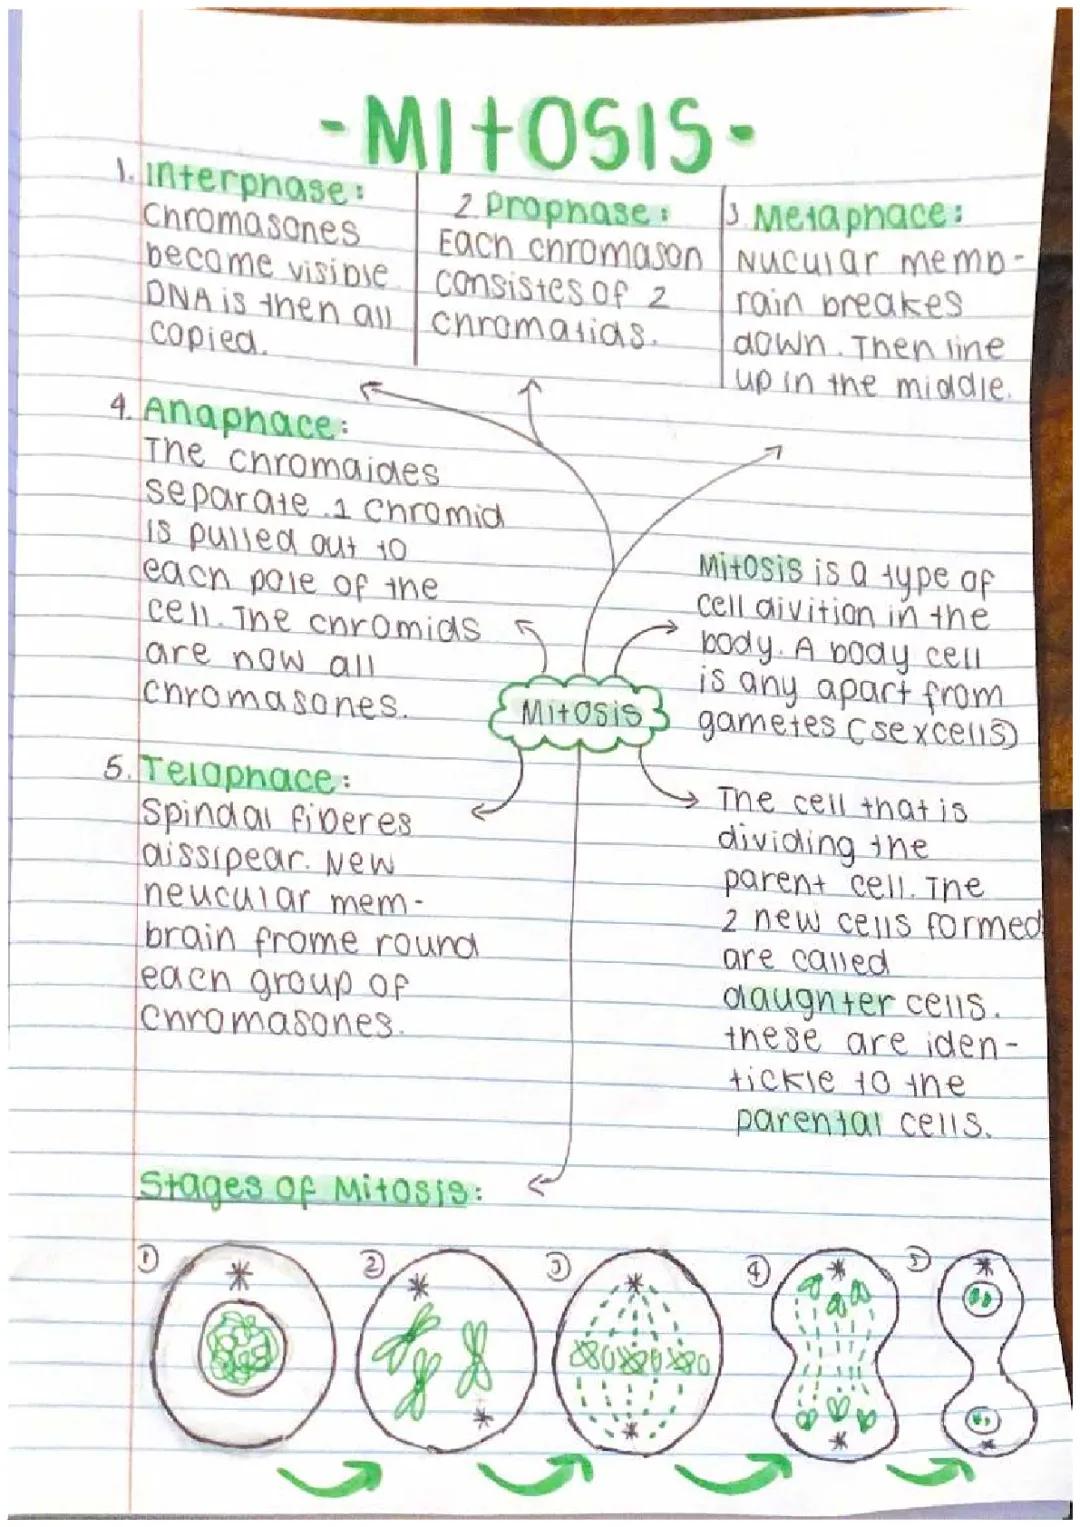 -MITOSIS-
1. Interphase:
Chromasones
become visible
DNA is then all
copied.
2. Prophase:
Each chromason
consistes of 2
chromatids.
3. Metaphace:
Nucular memb-
rain breakes
down. Then line
up in the middle.
4. Anaphace:
The chromaides
separate. 1 chromid
is pulled out to
each pole of the
cell. The chromids
are now all
chromasones.
Mitosis is a type of
cell divition in the
body. A body cell
is any apart from
gametes (sex cells)
Mitosis
5. Telaphace:
Spindal fiberes
dissipear. New
neucular mem-
brain frome round
each group of
chromasones.
The cell that is
dividing the
parent cell. The
2 new cells formed
are called
daughter cells.
these are iden-
tickle to the
parental cells.
Stages of Mitosis:
1
2
3
4
5